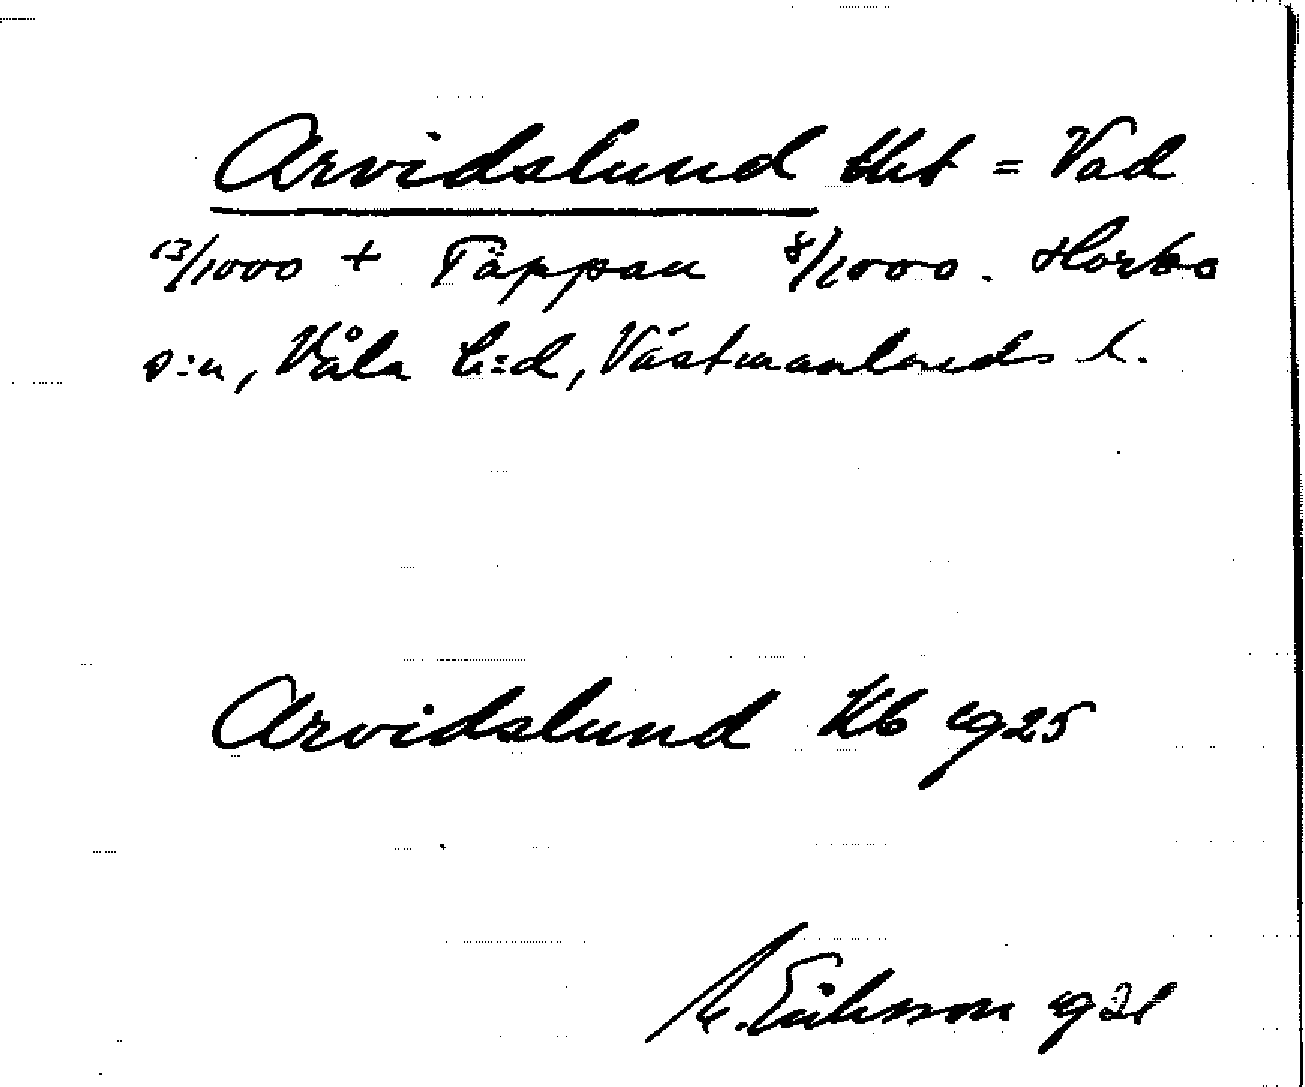 Arvidslund tkt = Vad
13/1000 + Täppan 8/1000. Horbo
s:n, Våla h:d, Västmanlands l.
Arvidslund Kb 1925
Eriksson 1931